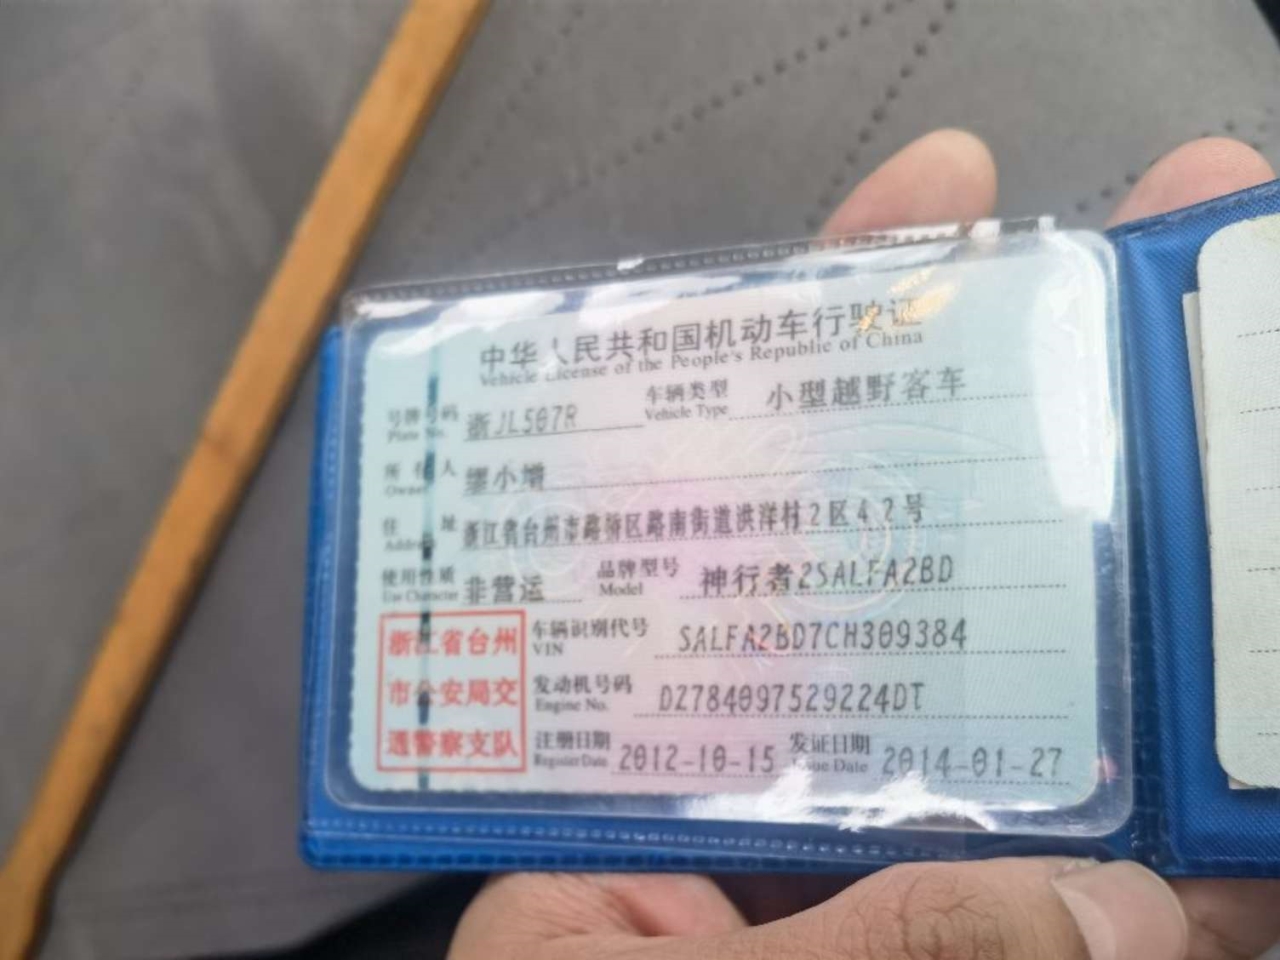 中华人民共和国机动车行驶证
Vehicle License of the People's Republic of China
号牌号码 浙JL507R 车辆类型 小型越野客车
Plate No. Vehicle Type
所有人 缪小增
Owner
住址 浙江省台州市路桥区路南街道洪洋村2区42号
Address
使用性质 非营运 品牌型号 神行者2SALFA2BD
Use Character Model
浙江省台州
市公安局交
通警察支队
车辆识别代号 SALFA2BD7CH309384
VIN
发动机号码 DZ784097529224DT
Engine No.
注册日期 2012-10-15 发证日期 2014-01-27
Register Date Issue Date